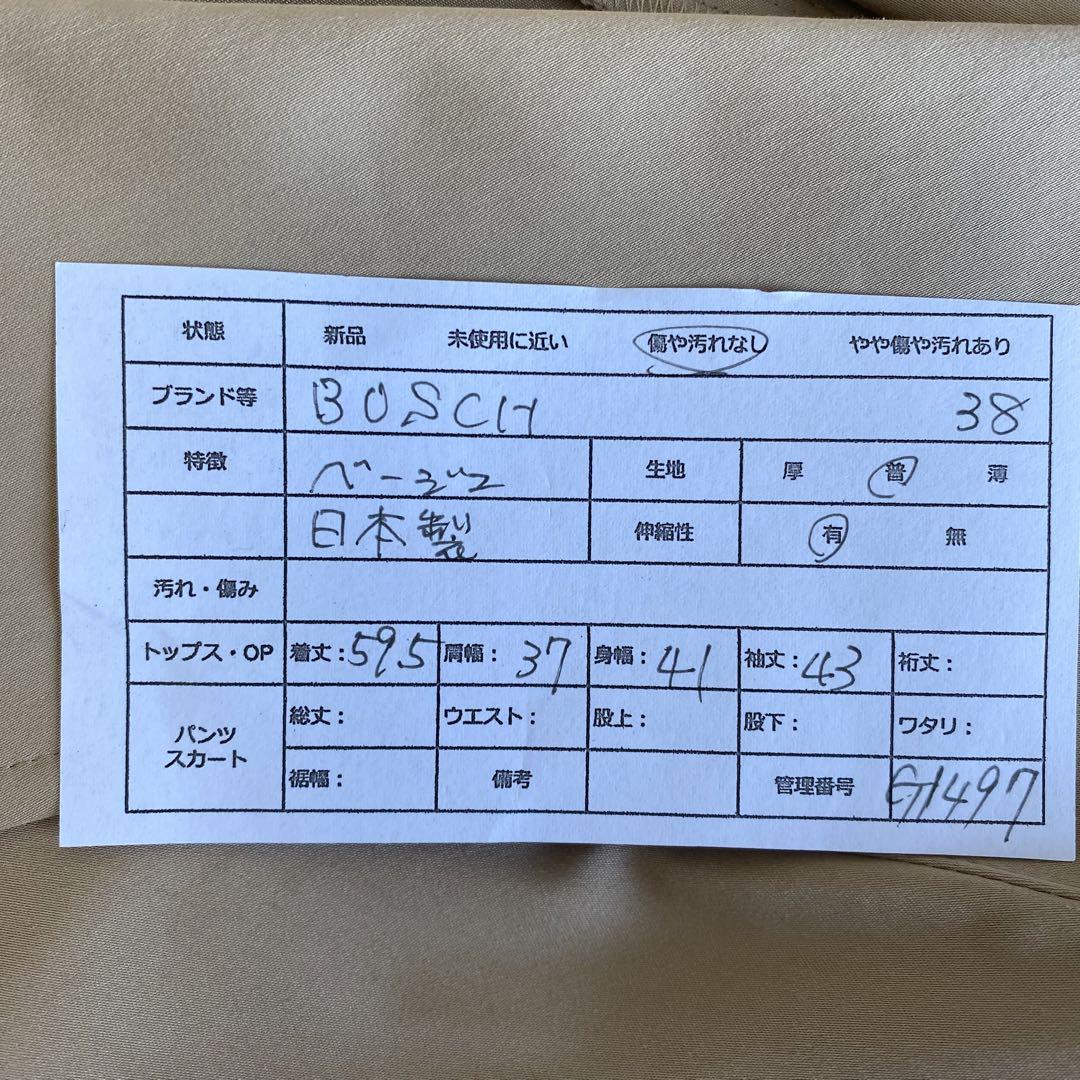 状態 新品 未使用に近い 傷や汚れなし やや傷や汚れあり
ブランド等 BOSCH 38
特徴 ベージュ 生地 厚 普 薄
日本製 伸縮性 有 無
汚れ・傷み
トップス・OP 着丈:59.5 肩幅:37 身幅:41 袖丈:43 裄丈:
パンツ スカート 総丈: ウエスト: 股上: 股下: ワタリ:
裾幅: 備考 管理番号 G1497